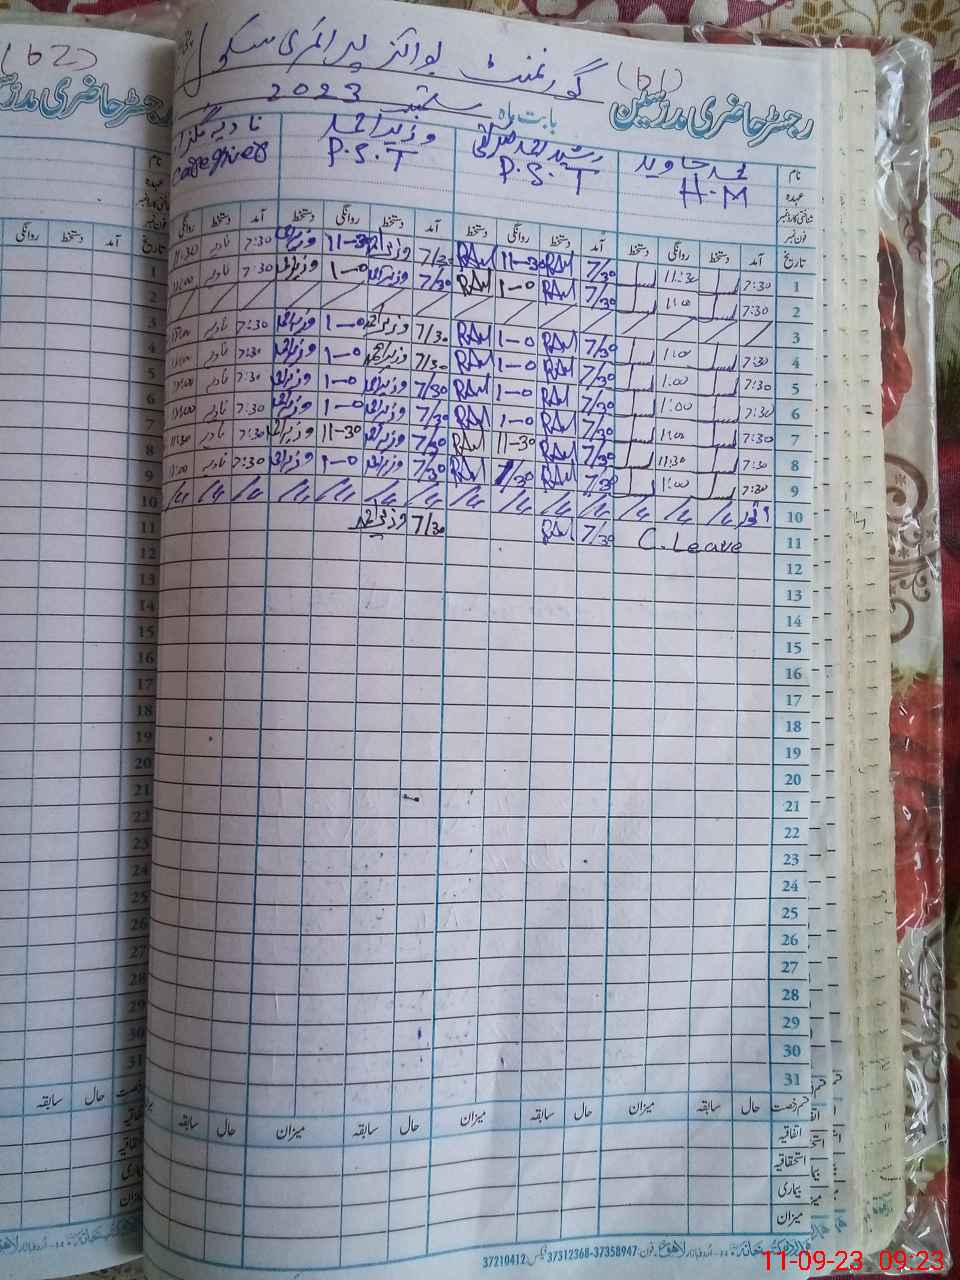 گورنمنٹ بوائز پرائمری سکول
(61)
(62)
رجسٹر حاضری مدرسین
بابت ماہ ستمبر 2023
نام محمد جاوید رشید احمد وزیر احمد نادیہ
عہدہ H.M P.S.T P.S.T caregiver
شناختی کارڈ نمبر
فون نمبر
تاریخ آمد دستخط روانگی دستخط آمد دستخط روانگی دستخط آمد دستخط روانگی دستخط آمد دستخط روانگی
1 7:30 11:30 7/30 RAM 11-30 RAM 7/30 وزیر احمد 11-30 وزیر احمد 7:30 نادیہ 11:30
2 7:30 1:00 7/30 RAM 1-0 RAM 7/30 وزیر احمد 1-0 وزیر احمد 7:30 نادیہ 1:00
3
4 7:30 1:00 7/30 RAM 1-0 RAM 7/30 وزیر احمد 1-0 وزیر احمد 7:30 نادیہ 1:00
5 7:30 1:00 7/30 RAM 1-0 RAM 7/30 وزیر احمد 1-0 وزیر احمد 7:30 نادیہ 1:00
6 7:30 1:00 7/30 RAM 1-0 RAM 7/30 وزیر احمد 1-0 وزیر احمد 7:30 نادیہ 1:00
7 7:30 1:00 7/30 RAM 1-0 RAM 7/30 وزیر احمد 1-0 وزیر احمد 7:30 نادیہ 1:00
8 7:30 11:30 7/30 RAM 11-30 RAM 7/30 وزیر احمد 11-30 وزیر احمد 7:30 نادیہ 11:30
9 7:30 1:00 7/30 RAM RAM 7/30 وزیر احمد 1-0 وزیر احمد 7:30 نادیہ 1:00
10
11 C. Leave 7/30 RAM 7/30 وزیر احمد
12
13
14
15
16
17
18
19
20
21
22
23
24
25
26
27
28
29
30
31
قسم رخصت حال سابقہ میزان حال سابقہ میزان حال سابقہ میزان حال سابقہ
اتفاقیہ
استحقاقیہ
بیماری
میزان
اردو بازار لاہور فون: 37358947-37312368 فیکس: 37210412
11-09-23 09:23